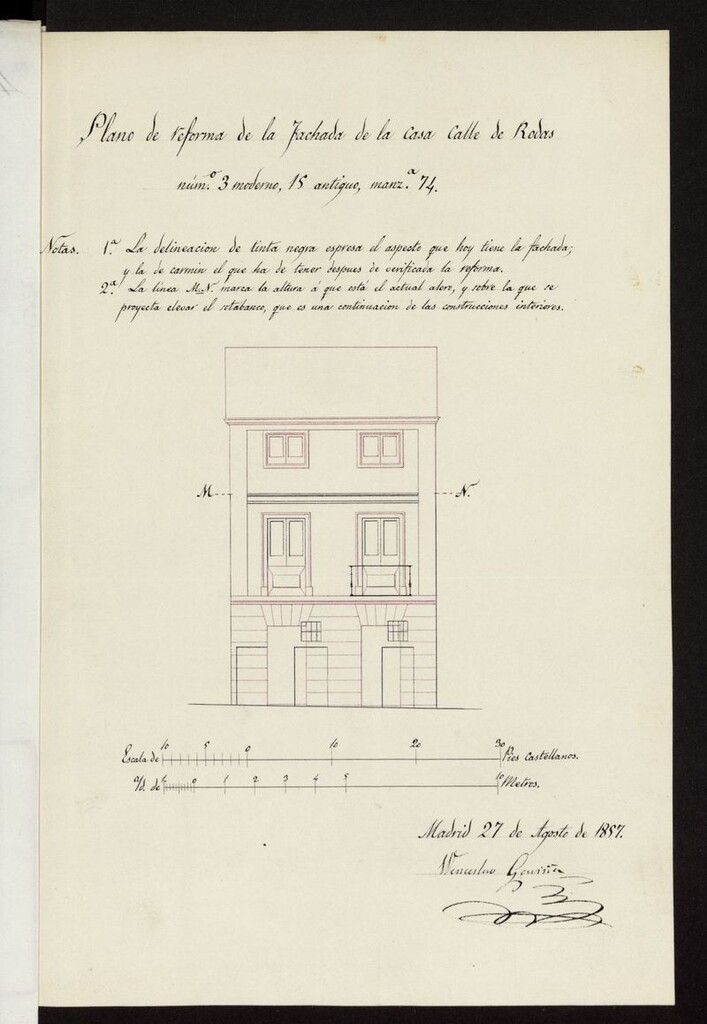 Plano de reforma de la Fachada de la Casa Calle de Rodas
núm.º 3 moderno, 15 antiguo, manz.ª 74.
Notas. 1.ª La delineacion de tinta negra espresa el aspecto que hoy tiene la fachada;
y la de carmin el que ha de tener despues de verificada la reforma.
2.ª La linea M..N. marca la altura á que está el actual alero, y sobre la que se
proyecta elevar el sotabanco, que es una continuacion de las construcciones interiores.
M N.
Escala de 10 5 0 10 20 30 Pies Castellanos.
Yd. de 1 0 1 2 3 4 5 10 Metros.
Madrid 27 de Agosto de 1857.
Wenceslao